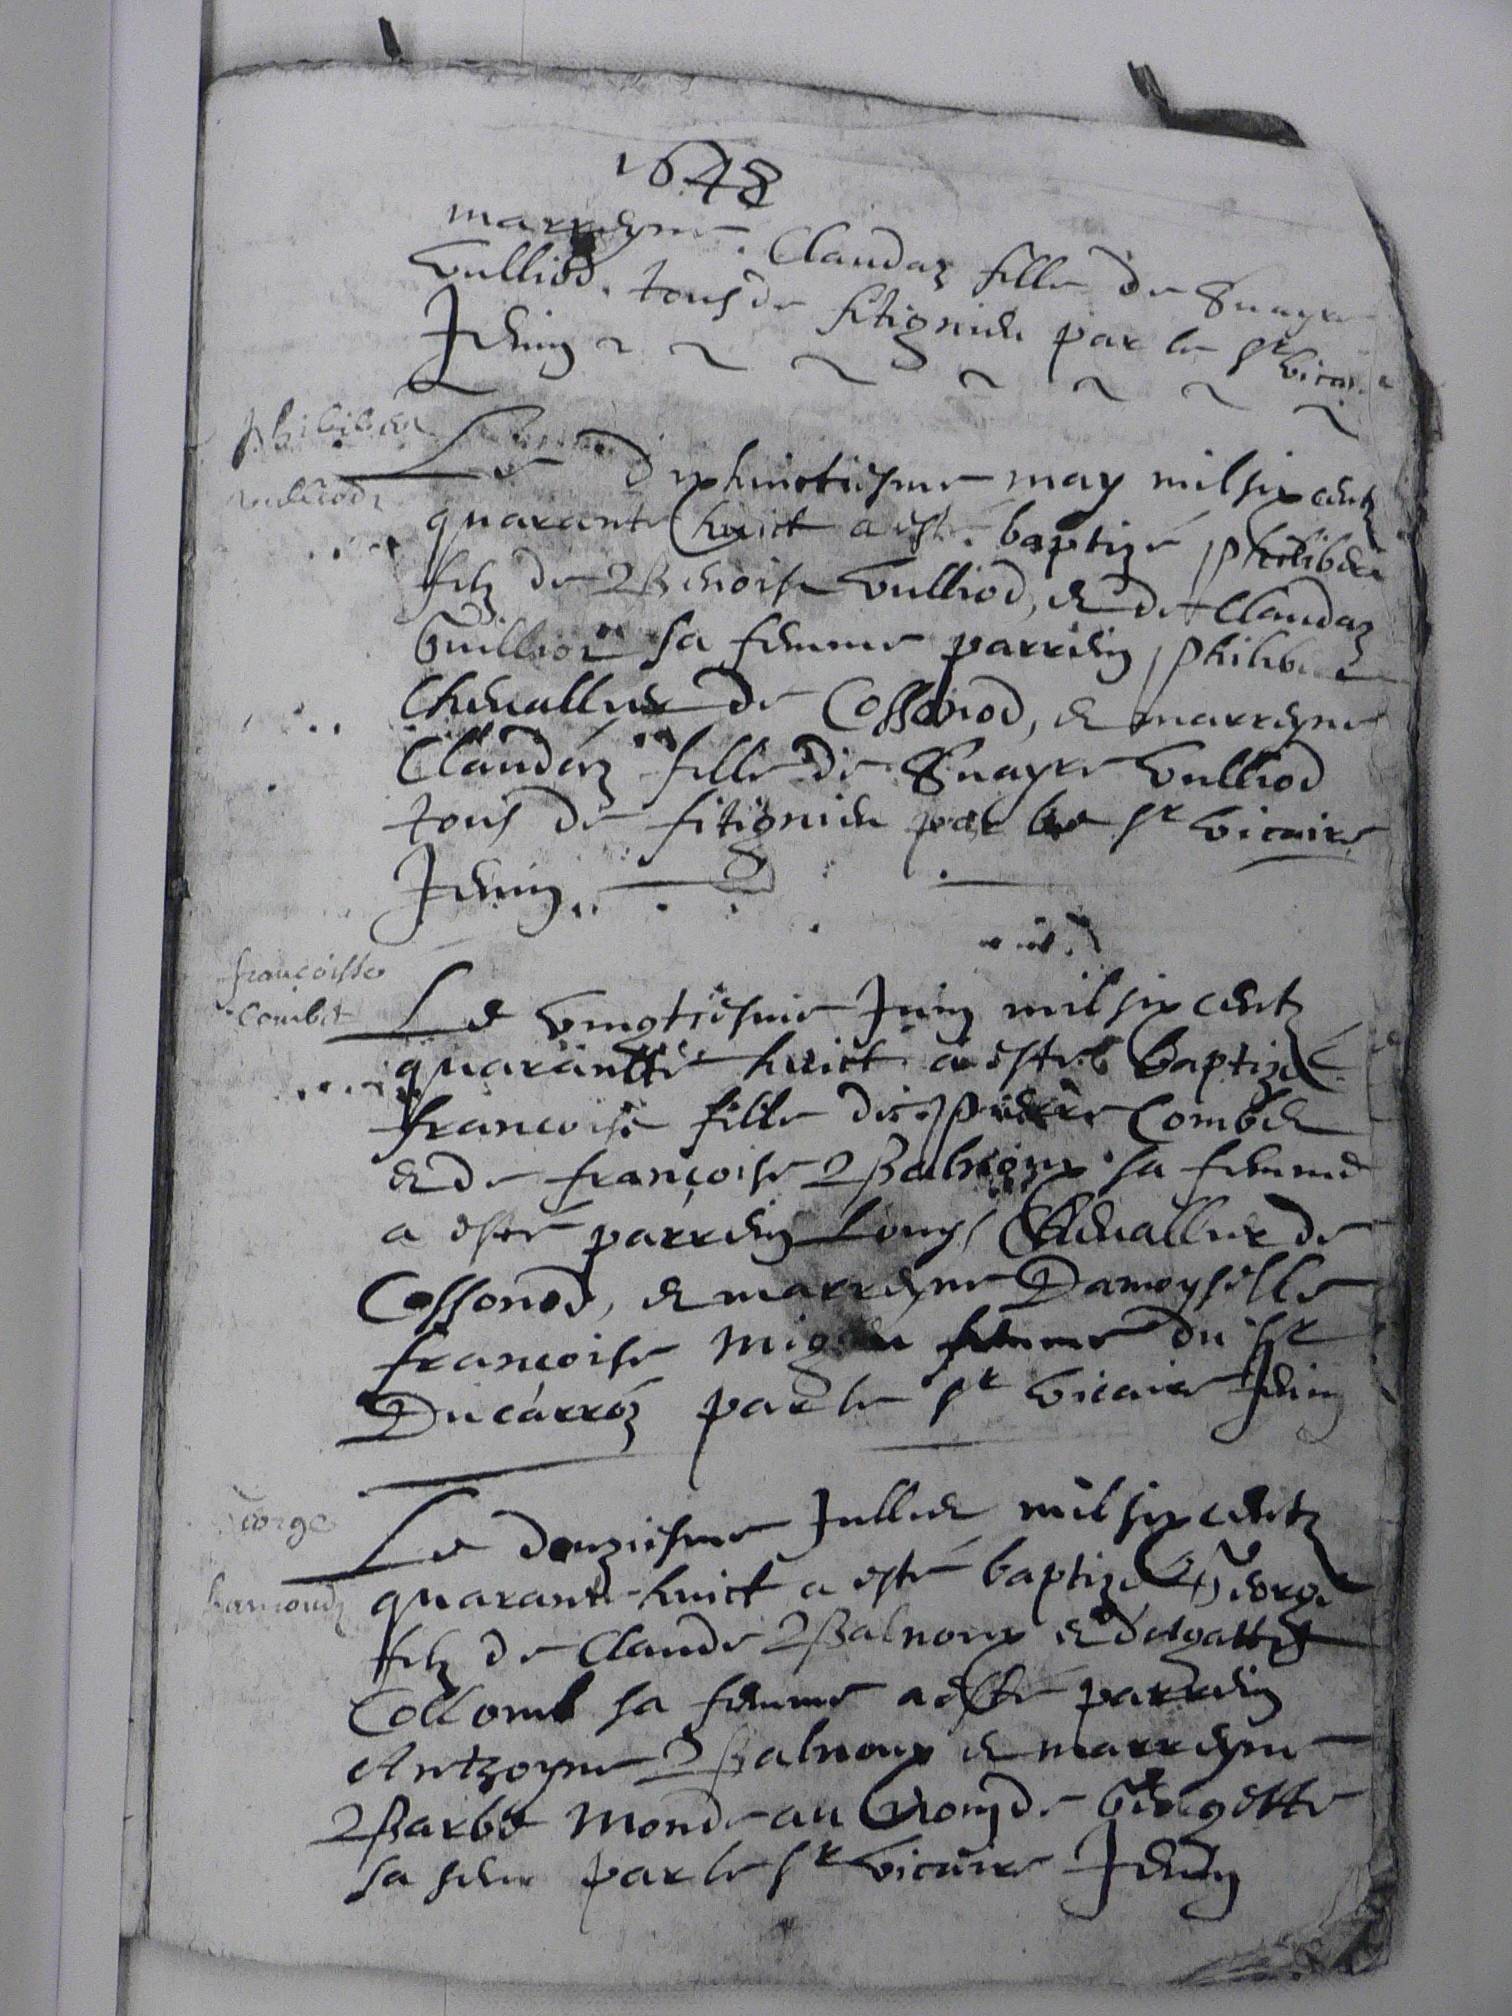 1648
marreyne. Claudaz fille de Guayre
Vulliod. tous de fitignieu par le Sr vicaire
Jenin
Philibert
Vulliodz
Le dixhuictiesme may mil six centz
quarante huict a esté baptizé Philibert
filz de Benoist Vulliod, et de Claudaz
Guilliot sa femme parrein Philibert
Chevallier de Cossonod, et marreyne
Claudaz fille de Guayre Vulliod
tous de fitignieu par le Sr vicaire
Jenin
françoisse
Combet
Le vingtiesme Juin mil six centz
quarantte huict a esté baptizé
françoise fille de Pierre Combet
et de françoise Balmoux sa femme
a esté parrein Louys Chevallier de
Cossonod, et marreyne Damoyselle
françoise Migieu femme du Sr
Ducarroz par le Sr vicaire Jenin
George
Le douziesme Jullet mil six centz
quarante huict a esté baptizé George
filz de Claude Balmoux et
Collomb sa femme a esté parrein
Antzoyne Balmoux et marreyne
Barbe Monde au nom de Georgette
sa seur par le Sr vicaire Jenin